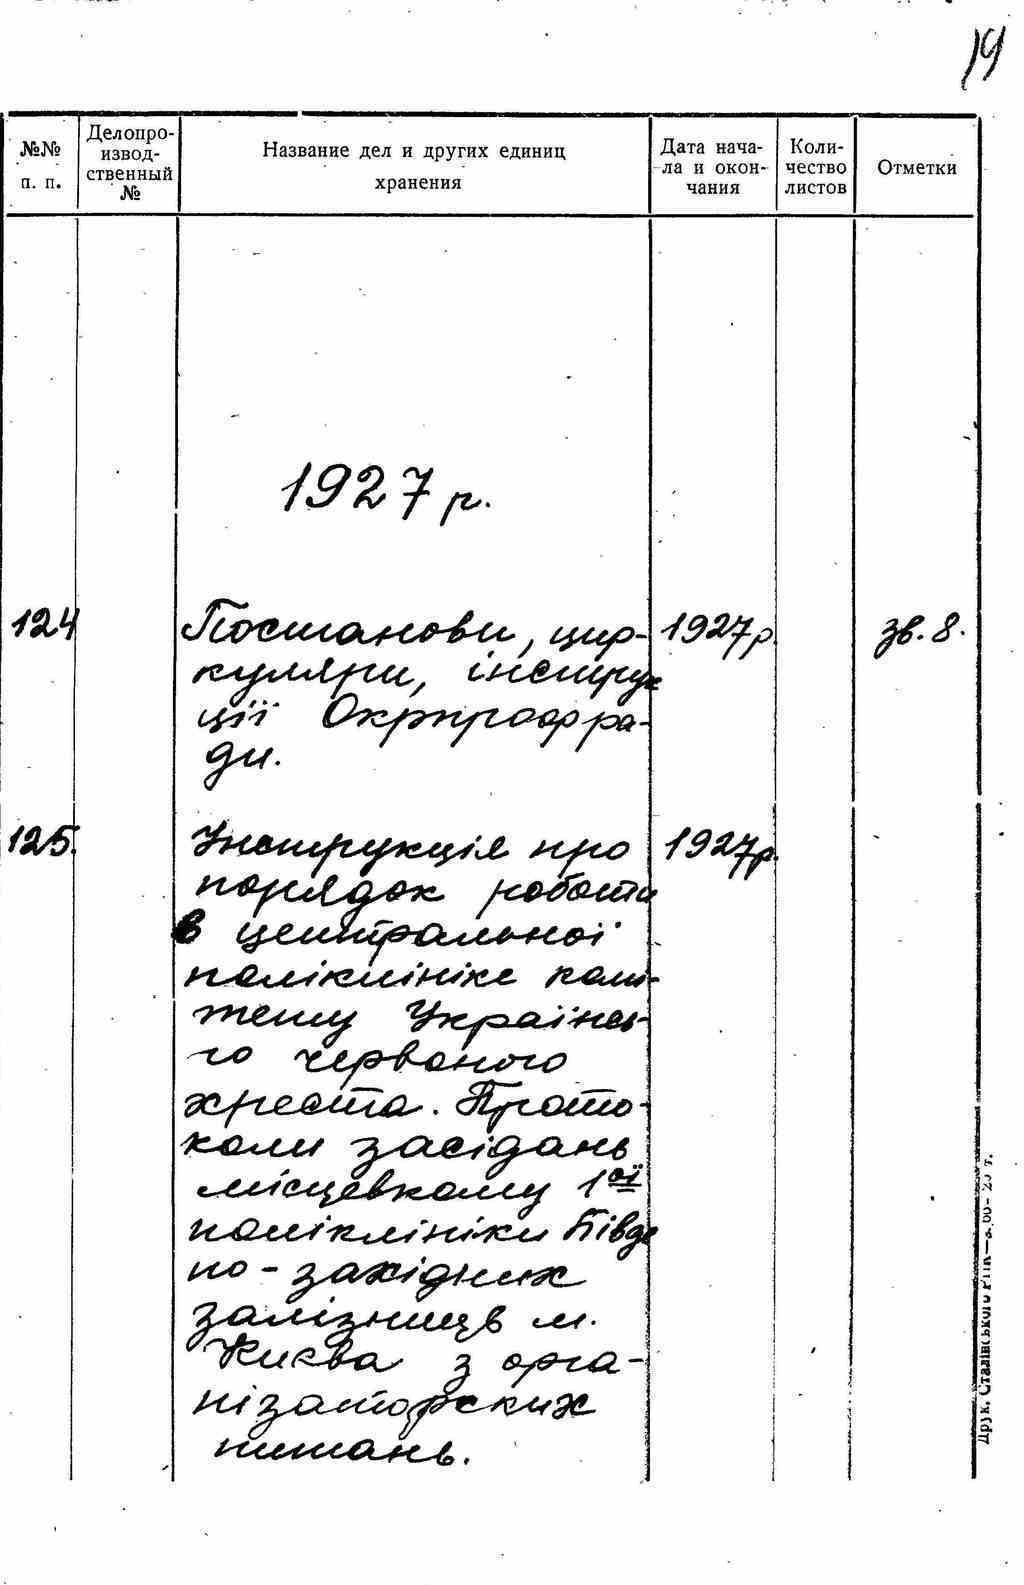 19
№№ п. п.
Делопро-
извод-
ственный
№
Название дел и других единиц
хранения
Дата нача-
ла и окон-
чания
Коли-
чество
листов
Отметки
1927 р.
124 Постанови, цир- 1927р. зв. 8.
куляри, інструк
ції Окрпрофра-
ди.
125. Інструкція про 1927р.
порядок роботи
в центральної
поліклініке комі-
тету Українсь-
го червоного
хреста. Прото-
коли засідань
місцевкому 1ої
поліклініки Півде
но-західних
залізниць м.
Києва з орга-
нізаторских
питань.
Друк. Сталінського